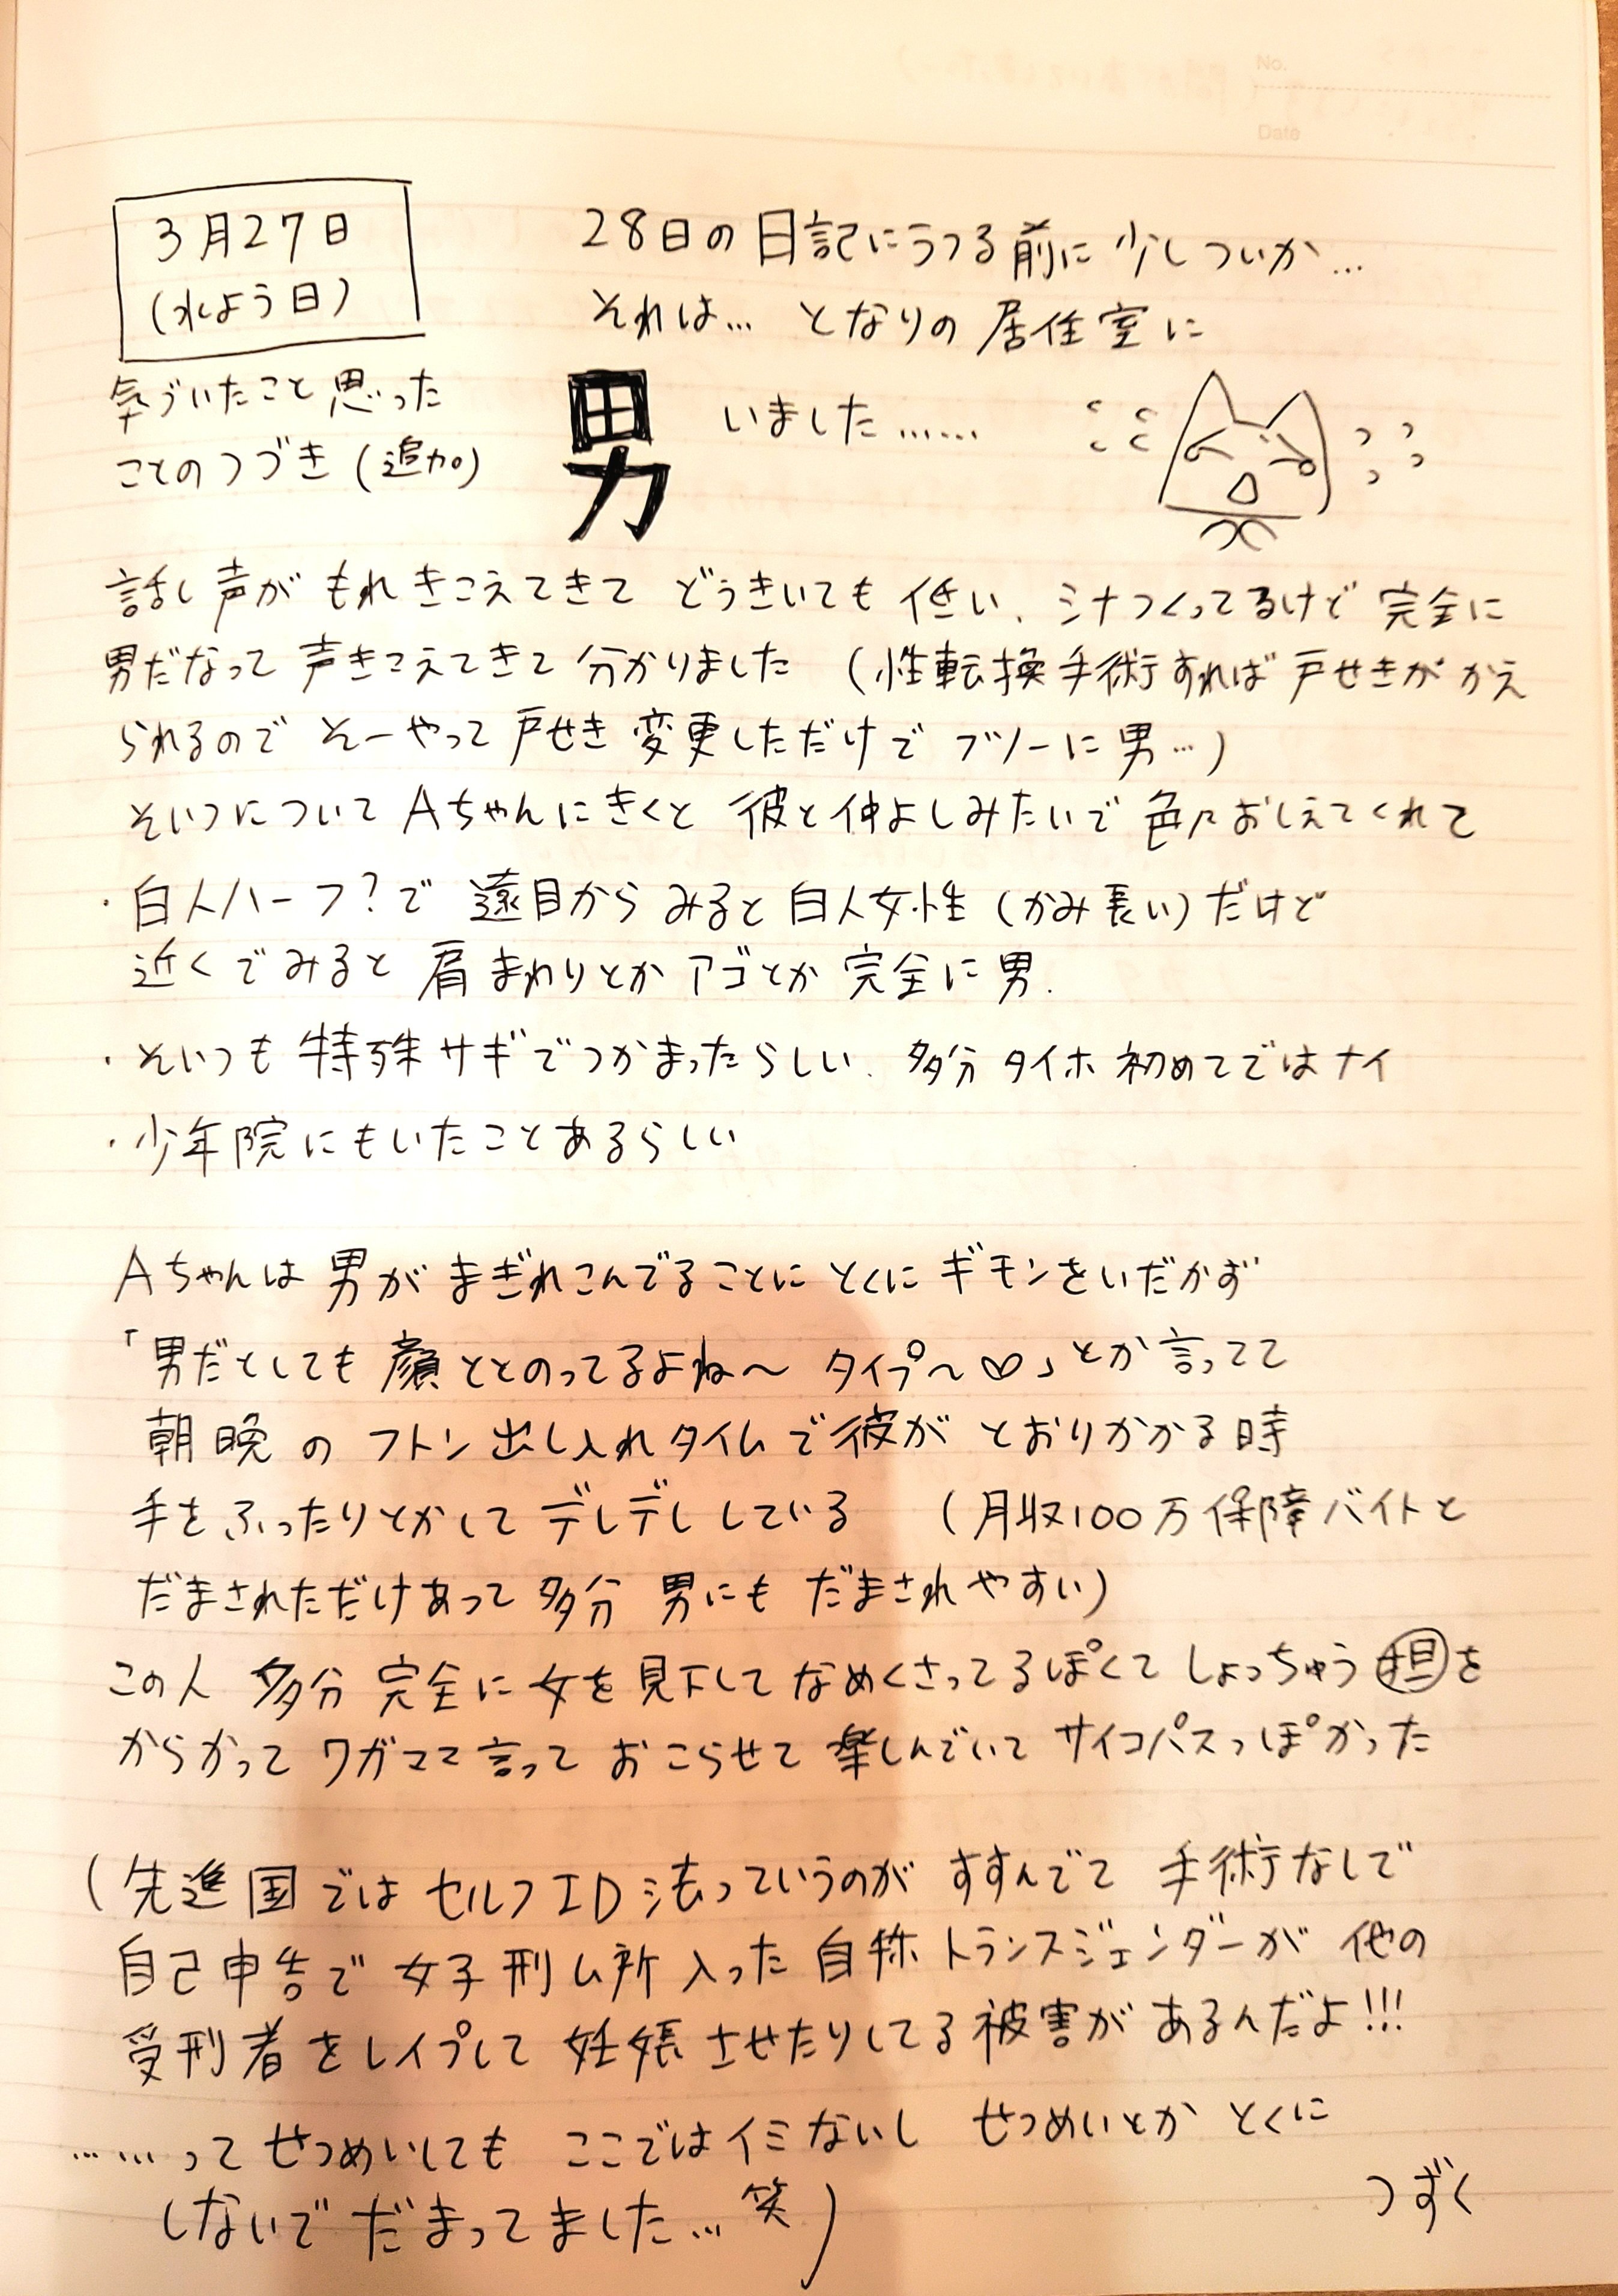 No.
Date
3月27日
(水よう日)
気づいたこと思った
ことのつづき(追加)
28日の日記にうつる前に少しついか…
それは… となりの居住室に
男 いました……
話し声がもれきこえてきて どうきいても低い、シナつくってるけど 完全に
男だなって 声きこえてきて 分かりました (性転換手術すれば戸せきがかえ
られるので そーやって戸せき変更しただけで フツーに男…)
そいつについて Aちゃんにきくと 彼と仲よしみたいで 色々おしえてくれて
・白人ハーフ?で 遠目からみると白人女性(かみ長い)だけど
近くでみると 肩まわりとかアゴとか 完全に男.
・そいつも特殊サギでつかまったらしい、多分タイホ初めてではナイ
・少年院にもいたことあるらしい
Aちゃんは男がまぎれこんでることに とくにギモンをいだかず
「男だとしても 顔ととのってるよね〜 タイプ〜♡」とか言ってて
朝晩のフトン出し入れタイムで彼が とおりかかる時
手をふったりとかして デレデレしている (月収100万保障バイトと
だまされただけあって多分 男にもだまされやすい)
この人 多分 完全に女を見下して なめくさってるぽくて しょっちゅう担を
からかって ワガママ言って おこらせて 楽しんでいて サイコパスっぽかった
(先進国では セルフID法っていうのが すすんでて 手術なしで
自己申告で 女子刑ム所入った自称トランスジェンダーが 他の
受刑者をレイプして 妊娠させたりしてる被害があるんだよ!!!
……ってせつめいしても ここではイミないし せつめいとか とくに
しないで だまってました…笑)
つずく